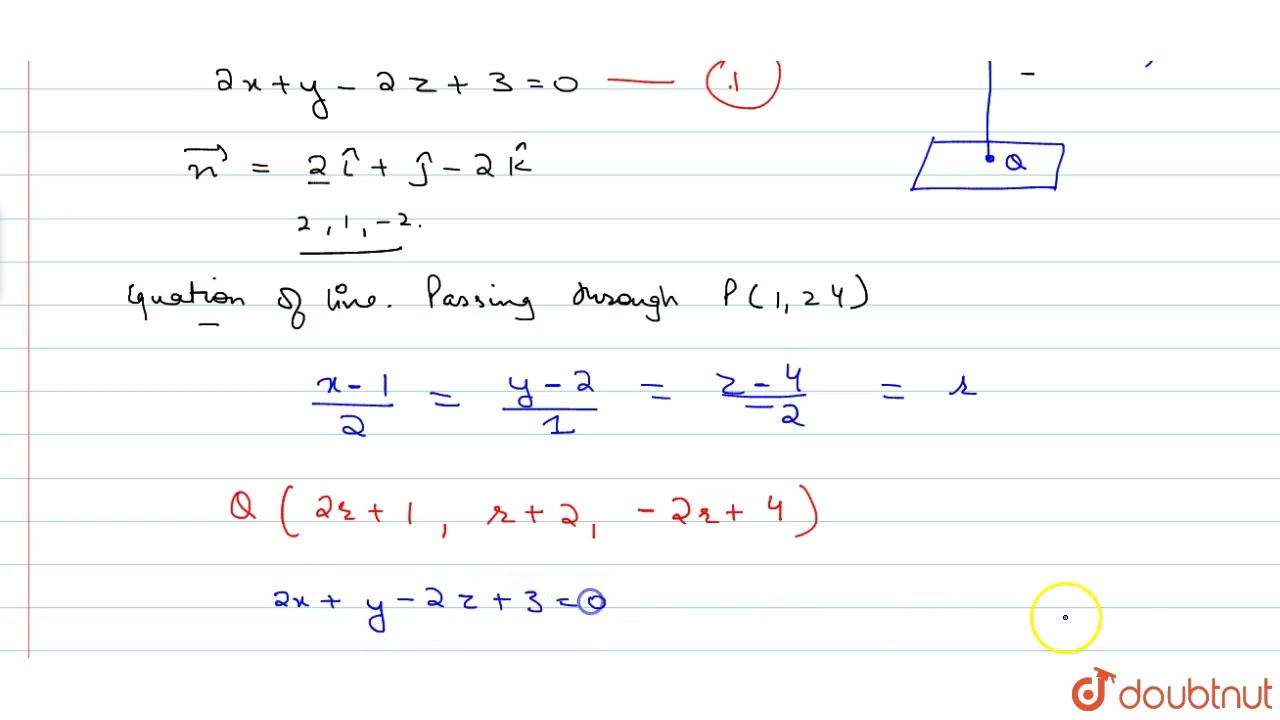 2x + y - 2z + 3 = 0 —— (1)
n⃗ = 2î + ĵ - 2k̂
Q
2, 1, -2.
Equation of line. Passing through P(1, 2 4)
x-1/2 = y-2/1 = z-4/-2 = r
Q (2r+1, r+2, -2r+4)
2x + y - 2z + 3 = 0
doubtnut